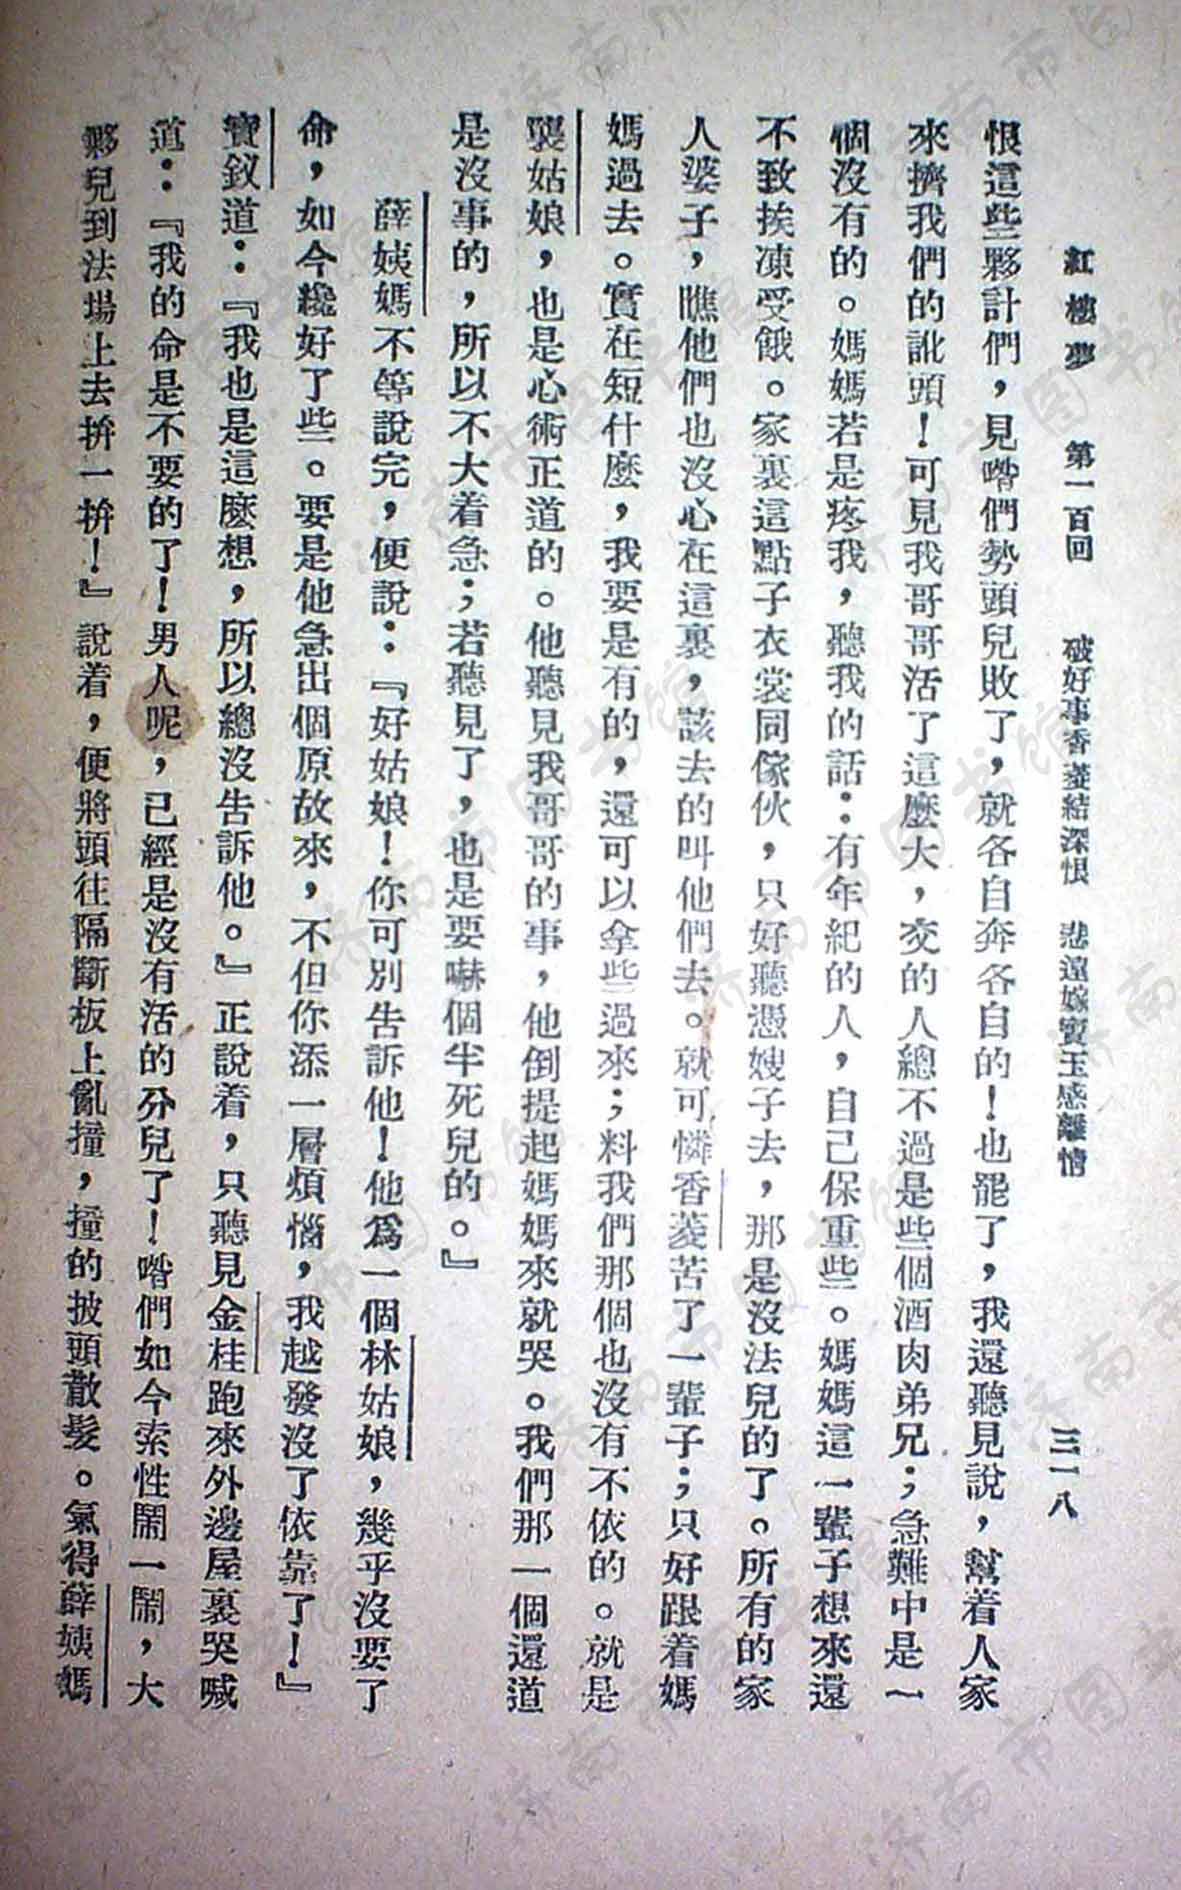 紅樓夢　第一百回　破好事香菱結深恨　悲遠嫁寶玉感離情　三一八
恨這些夥計們，見喒們勢頭兒敗了，就各自奔各自的！也罷了，我還聽見說，幫着人家
來擠我們的訛頭！可見我哥哥活了這麼大，交的人總不過是些個酒肉弟兄；急難中是一
個沒有的。媽媽若是疼我，聽我的話：有年紀的人，自己保重些。媽媽這一輩子想來還
不致挨凍受餓。家裏這點子衣裳同傢伙，只好聽憑嫂子去，那是沒法兒的了。所有的家
人婆子，瞧他們也沒心在這裏，該去的叫他們去。就可憐香菱苦了一輩子；只好跟着媽
媽過去。實在短什麼，我要是有的，還可以拿些過來；料我們那個也沒有不依的。就是
襲姑娘，也是心術正道的。他聽見我哥哥的事，他倒提起媽媽來就哭。我們那一個還道
是沒事的，所以不大着急；若聽見了，也是要嚇個半死兒的。』
薛姨媽不等說完，便說：『好姑娘！你可別告訴他！他爲一個林姑娘，幾乎沒要了
命，如今纔好了些。要是他急出個原故來，不但你添一層煩惱，我越發沒了依靠了！』
寶釵道：『我也是這麼想，所以總沒告訴他。』正說着，只聽見金桂跑來外邊屋裏哭喊
道：『我的命是不要的了！男人呢，已經是沒有活的分兒了！喒們如今索性鬧一鬧，大
夥兒到法場上去拚一拚！』說着，便將頭往隔斷板上亂撞，撞的披頭散髮。氣得薛姨媽
济南市图书馆